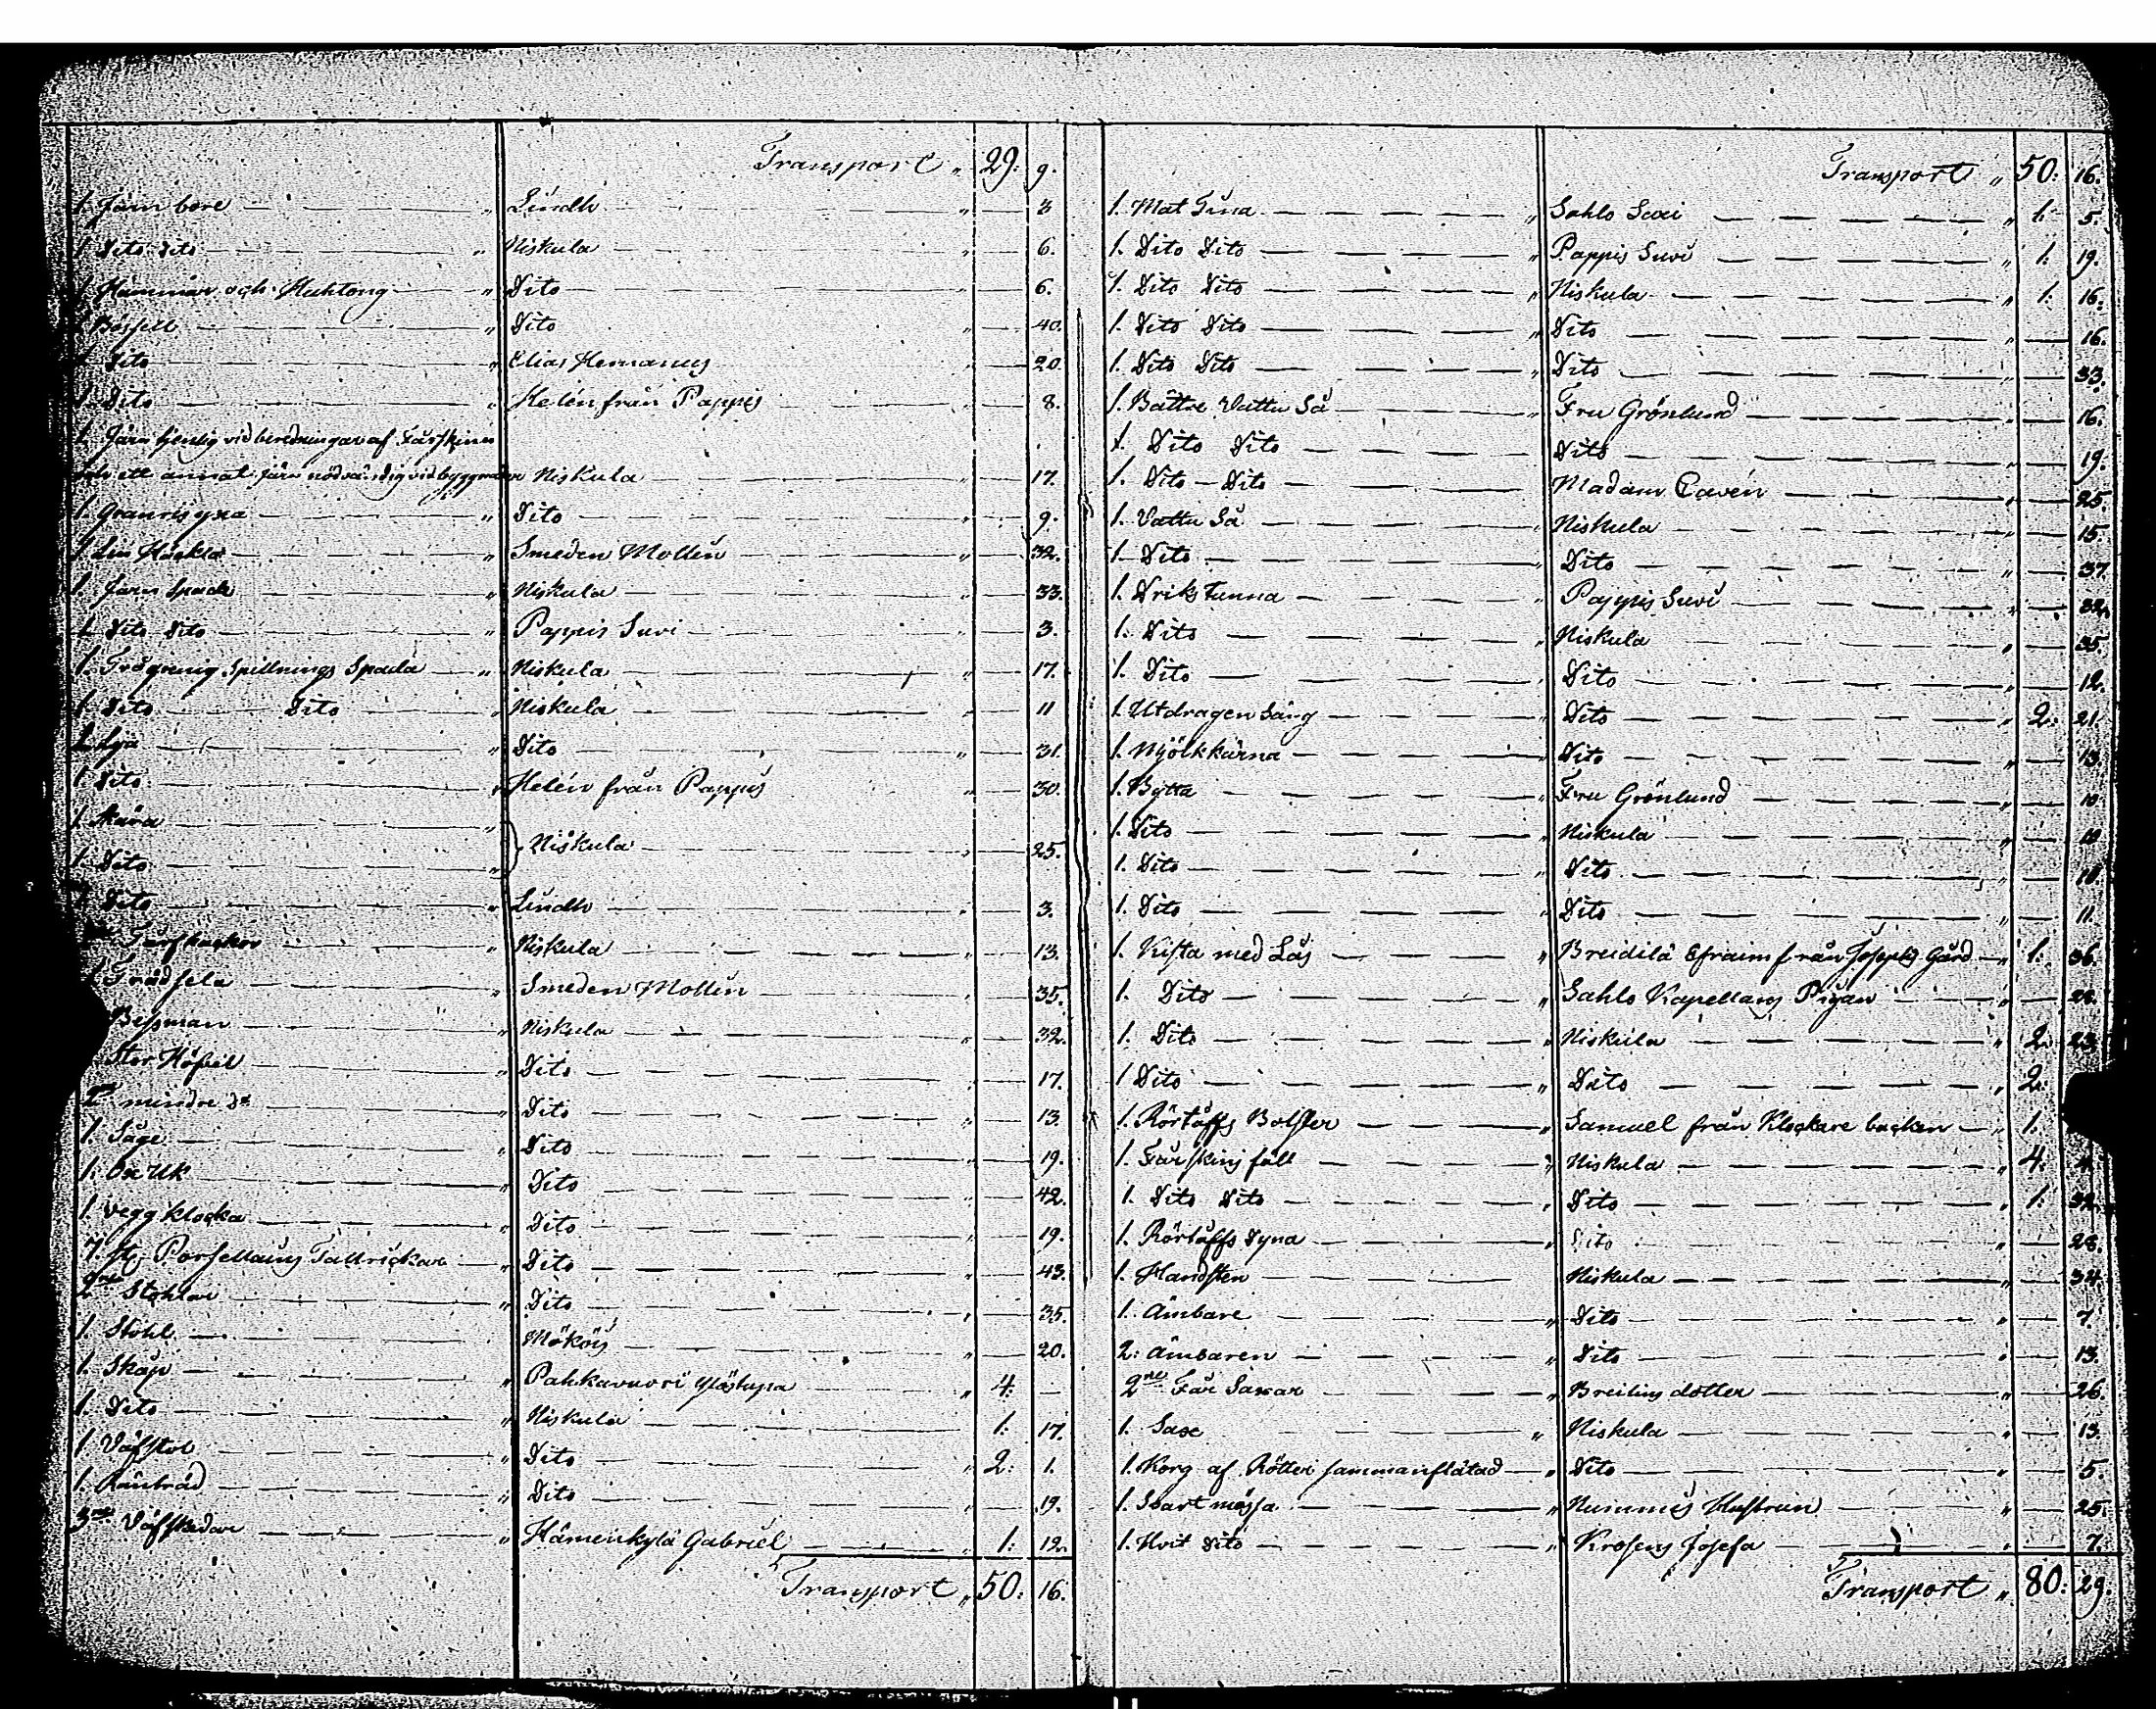 Transport " 29: 9.
1. Järn bore " Lindh " 3
1 Dito Dito " Niskula " 6.
1 Hammar och Huktong " Dito " 6.
1 Bössell " Dito " 40.
1 Dito " Elias Hemanus " 20.
1 Dito " Helén från Pappis " 8.
1 Järn tjenlig vid beredningar af Fårskinn
och ett annat Järn nödvändig vid byggnader Niskula 17.
1. Granris yxa " Dito " 9.
1 Lin Häckla " Smeden Mollin " 32.
1. Järn Spade " Niskula 33.
1 Dito Dito " Pappis Suvi " 3.
1. Trägrenig Spillnings Spada " Niskula " 17.
1 Dito Dito " Niskula " 11
1 Lya " Dito " 31.
1 Dito " Helén från Pappis " 30.
1 Skära "
1. Dito " } Niskula " 25.
1 Dito " Lindh " 3.
Niskula " 13.
1 Trådsela " Smeden Mollin " 35.
Bessman " Niskula " 32.
Stor Höfvel " Dito 17.
2ne mindre do " Dito " 13.
1. Såge " Dito " 19.
1. Ox Uk " Dito " 42.
1. vegg klocka " Dito " 19.
7. st. Porsellains Tallrickar " Dito " 43.
2ne Stohlar " Dito " 35.
1. Stohl Mököis " 20.
1. Skåp " Pahkavuori " 4:
1. Dito " Niskula 1: 17.
1. Väfstol " Dito " 2: 1.
1. Ränbräd " Dito " 19.
3ne Väfskedar " Hämeenkylä Gabriel " 1: 12.
Transport " 50: 16.
Transport " 50: 16.
1. Mat Tina " Sahlo Suvi " 1: 5.
1. Dito Dito " Pappis Suvi " 1: 19.
1. Dito Dito " Niskula " 1: 16.
1. Dito Dito " Dito " 16.
1. Dito Dito " Dito " 33.
1. Bättre Vattu Så " Fru Grönlund " 16.
1. Dito Dito Dito " 19.
1. Dito Dito Madam Cavén " 25.
1. Vattu Så " Niskula " 15.
1. Dito " Dito " 37.
1. Driks tunna " Pappis Suvi " 32.
1. Dito " Niskula " 35.
1. Dito " Dito " 12.
1. Utdragen Säng " Dito " 2: 21.
1. Mjölkkärna " Dito " 13.
1. Bytta " Fru Grönlund " 10
1. Dito " Niskula " 10
1. Dito " Dito " 10.
1. Dito " Dito " 11.
1. Kista med Lås " Breidilä Efraim från Josephs Gård " 1: 36.
1. Dito " Sahlo Kapellans Pigan " 28.
1. Dito " Niskula " 2: 23.
1 Dito " Dito " 2:
1. Rörtåffs Bolster " Samuel från Klockare backen " 1.
1. Fårskins fäll " Niskula " 4: 4.
1. Dito Dito " Dito " 1: 32.
1. Rörtåffs Dyna " Dito " 28.
1. Handsten Niskula " 34.
1. Ämbare " Dito " 7.
2: Ämbaren " Dito " 13.
2ne Får Saxar " Breilins dotter " 26.
1. Saxe " Niskula " 13.
1. Korg af Rötter sammanflätad " Dito " 5.
1. Svart mössa " Nummis Hustrun " 25.
1. Hvit Dito " Krosens Josefa " 7.
Transport " 80: 29.